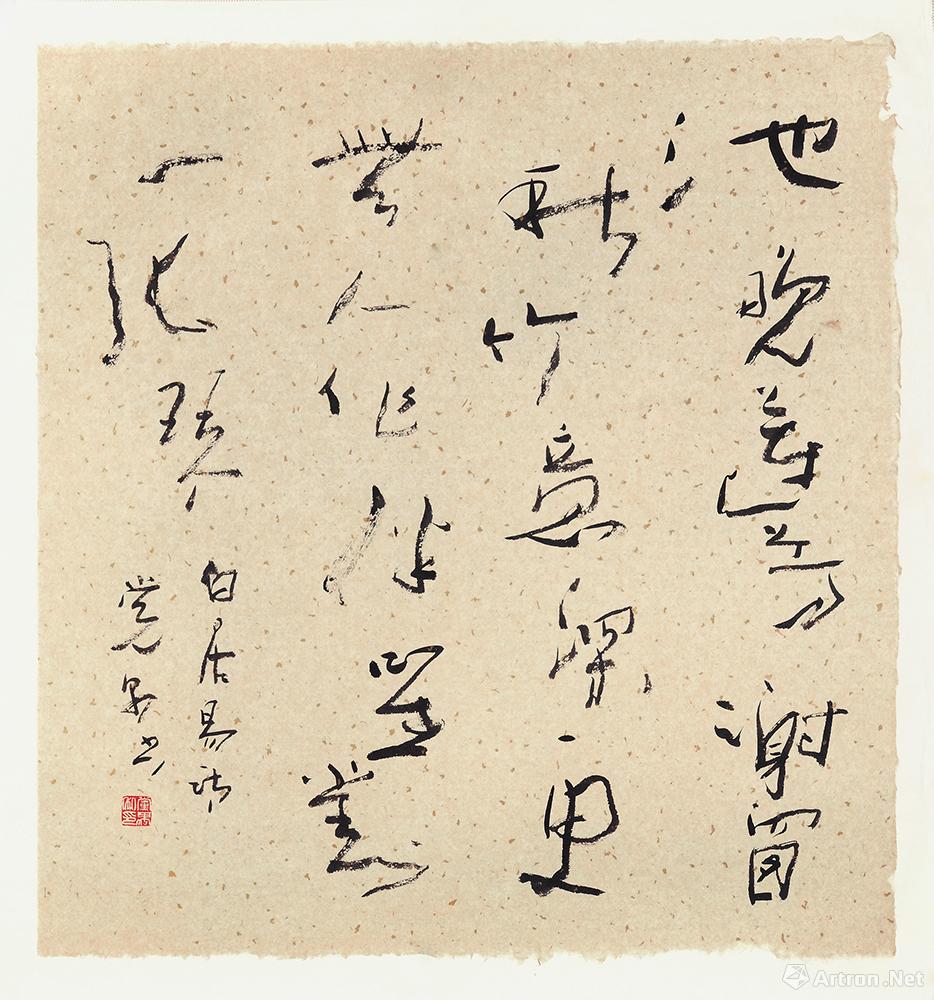 池晚蓮芳謝窗
秋竹意深更
無人作伴唯對
一張琴
白居易詩
書
Artron.Net